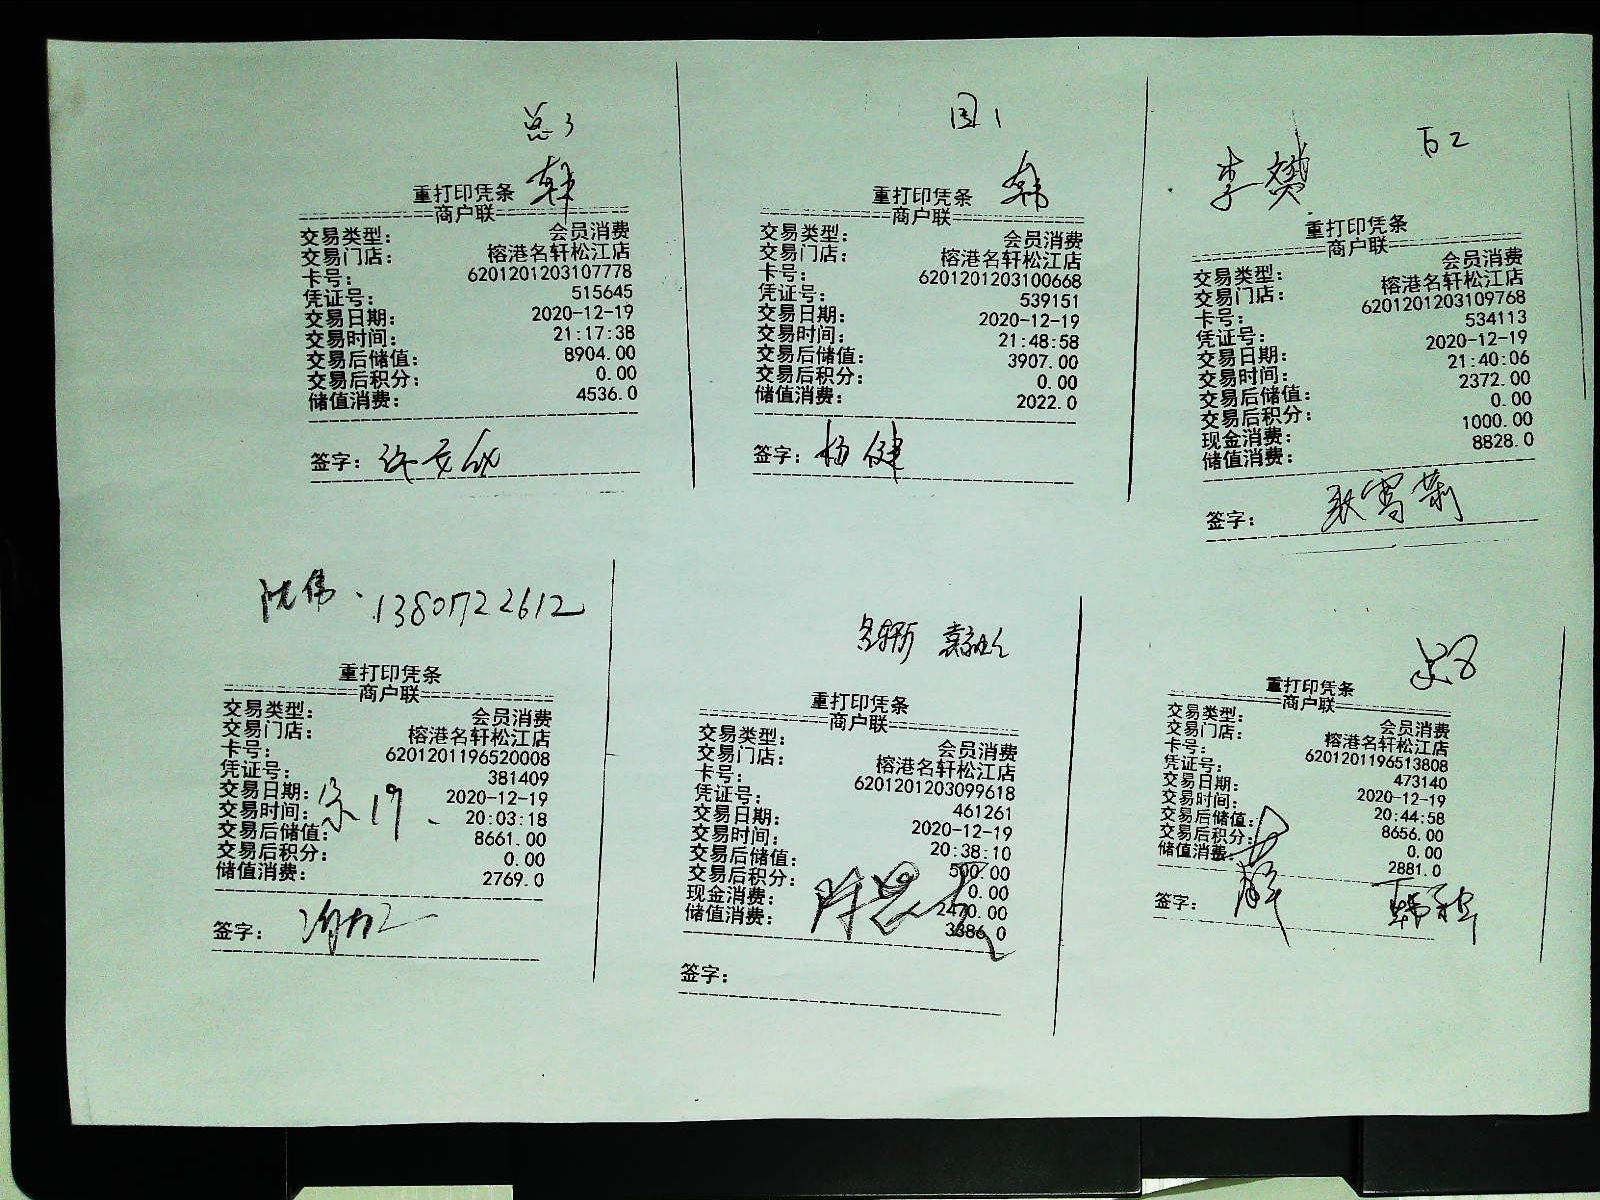 总3
韩
重打印凭条
商户联
交易类型： 会员消费
交易门店： 榕港名轩松江店
卡号： 6201201203107778
凭证号： 515645
交易日期： 2020-12-19
交易时间： 21:17:38
交易后储值： 8904.00
交易后积分： 0.00
储值消费： 4536.0
签字：
国1
韩
重打印凭条
商户联
交易类型： 会员消费
交易门店： 榕港名轩松江店
卡号： 6201201203100668
凭证号： 539151
交易日期： 2020-12-19
交易时间： 21:48:58
交易后储值： 3907.00
交易后积分： 0.00
储值消费： 2022.0
签字： 杨健
百2
李赟
重打印凭条
商户联
交易类型： 会员消费
交易门店： 榕港名轩松江店
卡号： 6201201203109768
凭证号： 534113
交易日期： 2020-12-19
交易时间： 21:40:06
交易后储值： 2372.00
交易后积分： 0.00
现金消费： 1000.00
储值消费： 8828.0
签字：
沈伟 13801722612
重打印凭条
商户联
交易类型： 会员消费
交易门店： 榕港名轩松江店
卡号： 6201201196520008
凭证号： 381409
交易日期： 2020-12-19
交易时间： 20:03:18
交易后储值： 8661.00
交易后积分： 0.00
储值消费： 2769.0
签字：
重打印凭条
商户联
交易类型： 会员消费
交易门店： 榕港名轩松江店
卡号： 6201201203099618
凭证号： 461261
交易日期： 2020-12-19
交易时间： 20:38:10
交易后储值： 500.00
交易后积分： 0.00
现金消费： 2470.00
储值消费： 3386.0
签字：
重打印凭条
商户联
交易类型： 会员消费
交易门店： 榕港名轩松江店
卡号： 6201201196513808
凭证号： 473140
交易日期： 2020-12-19
交易时间： 20:44:58
交易后储值： 8656.00
交易后积分： 0.00
储值消费： 2881.0
签字：